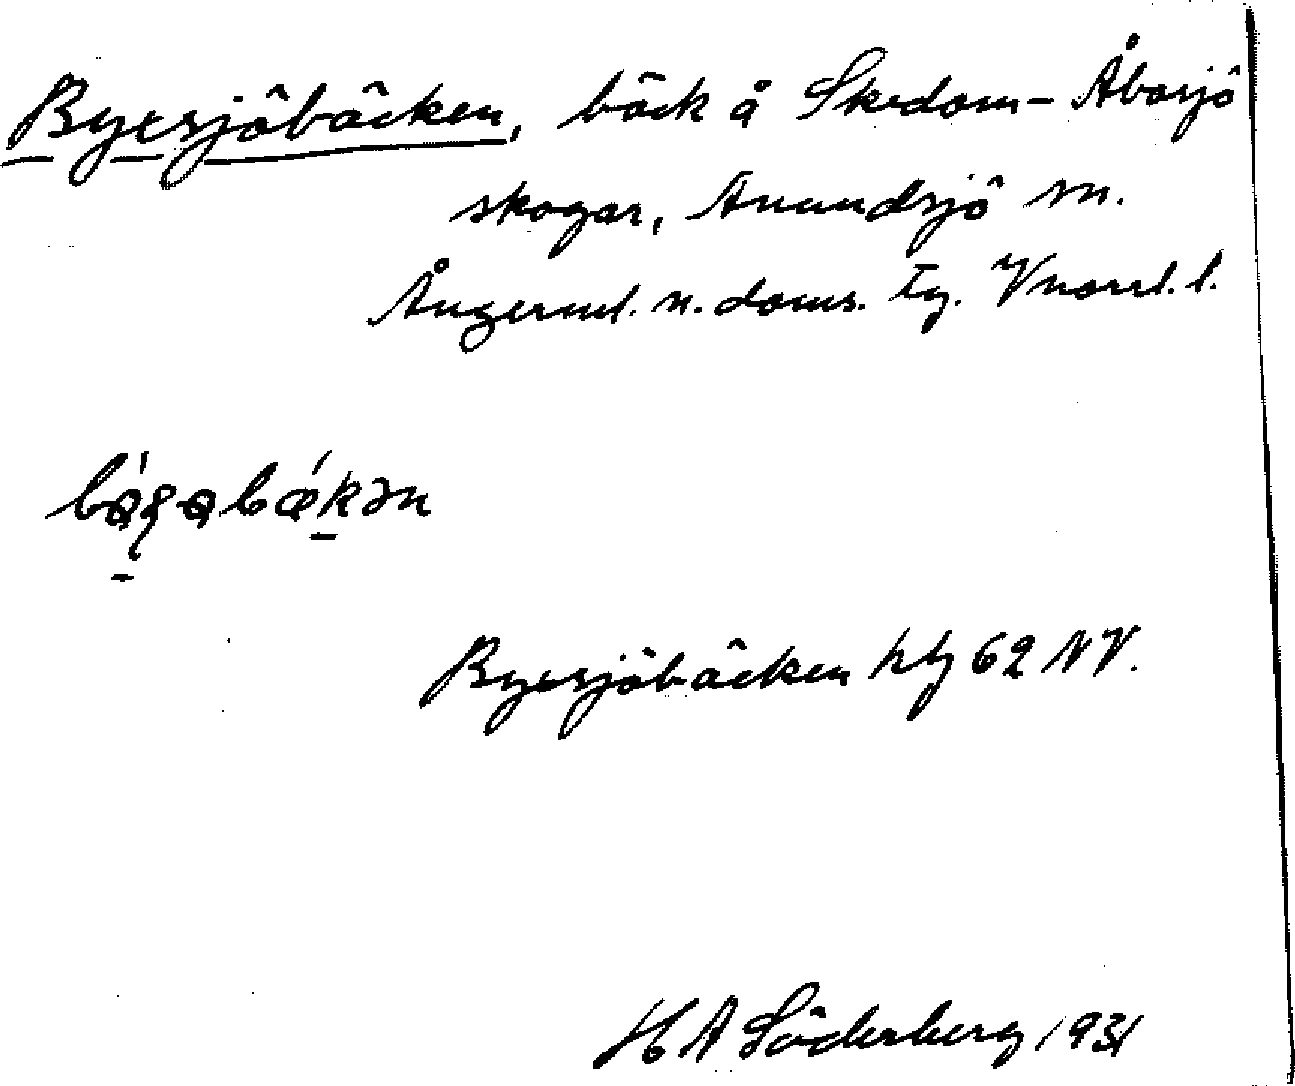 Byesjöbäcken, bäck å Skedom-Åbosjö
skogar, Anundsjö sn.
Ångerml. n. doms. tg. Vnorrl. l.
Byesjöbäcken hbl 62 NV.
H A Söderberg 1931